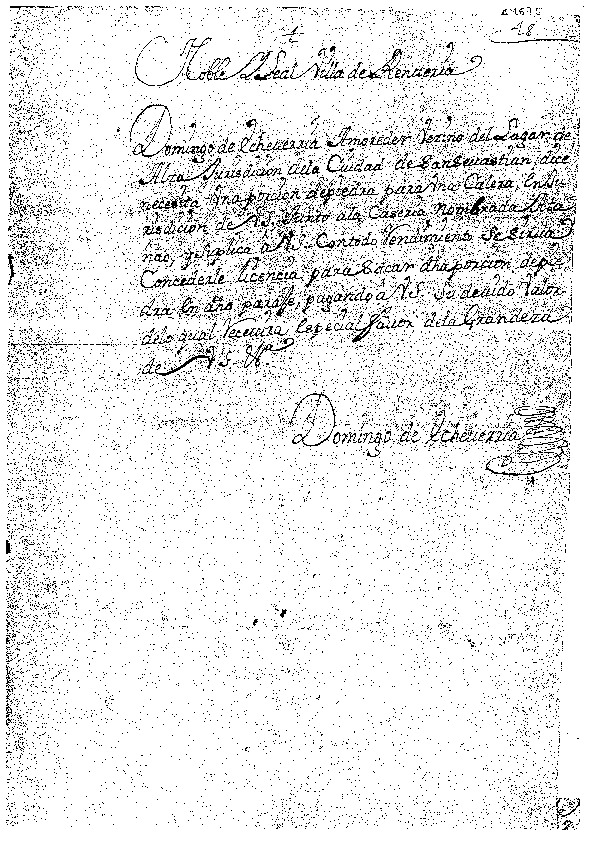 48
Noble y Leal Villa de Renteria
Domingo de Echeverria Amoreder Vezino del Lugar de
Alza Jurisdicion de la Ciudad de San Sevastian, dice
necesita una porcion de piedra para una Calera, En Ju-
risdicion de V.S. Junto ala Caseria nombrada
nao, y suplica a V.S. Contodo Rendimiento Se Sirva
Concederle licencia para Sacar dha porcion de pie-
dra En dho parage, pagando à V.S. Su devido Valor
delo qual recevirà Especial favor dela Grandeza
de V.S. &ª
Domingo de Echeverria